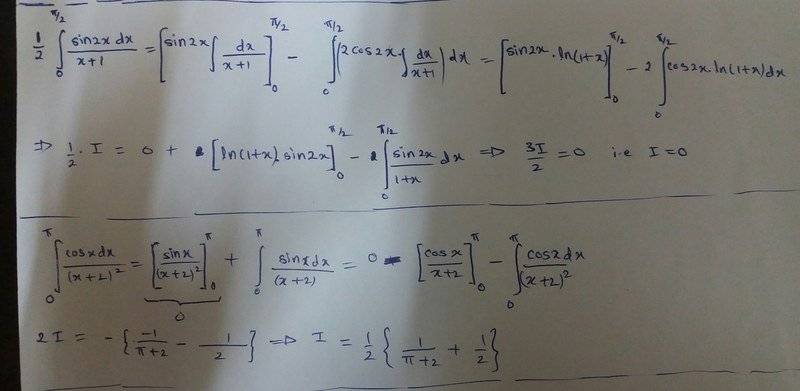 1/2 ∫₀^{π/2} sin2x dx/(x+1) = [sin2x ∫ dx/(x+1)]₀^{π/2} − ∫₀^{π/2} (2cos2x ∫ dx/(x+1)) dx = [sin2x · ln(1+x)]₀^{π/2} − 2 ∫₀^{π/2} cos2x · ln(1+x) dx
⇒ 1/2 · I = 0 + [ln(1+x) sin2x]₀^{π/2} − ∫₀^{π/2} sin2x/(1+x) dx ⇒ 3I/2 = 0 i.e I = 0
∫₀^π cosx dx/(x+2)² = [sinx/(x+2)²]₀^π + ∫₀^π sinx dx/(x+2) = 0 − [cosx/(x+2)]₀^π − ∫₀^π cosx dx/(x+2)²
0
2I = −{−1/(π+2) − 1/2} ⇒ I = 1/2 {1/(π+2) + 1/2}